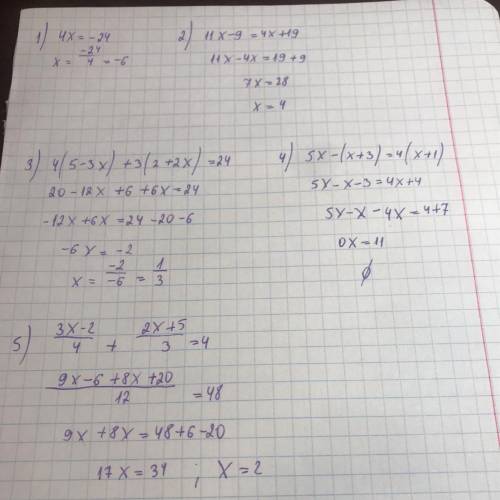 1) 4x = -24
x = -24/4 = -6
2) 11x - 9 = 4x + 19
11x - 4x = 19 + 9
7x = 28
x = 4
3) 4(5 - 3x) + 3(2 + 2x) = 24
20 - 12x + 6 + 6x = 24
-12x + 6x = 24 - 20 - 6
-6x = -2
x = -2/-6 = 1/3
4) 5x - (x + 3) = 4(x + 1)
5x - x - 3 = 4x + 4
5x - x - 4x = 4 + 7
0x = 11
∅
5) (3x - 2)/4 + (2x + 5)/3 = 4
(9x - 6 + 8x + 20)/12 = 48
9x + 8x = 48 + 6 - 20
17x = 34 ; x = 2